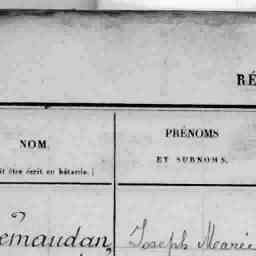 RÉ
NOM.
PRÉNOMS
ET SURNOMS.
it être écrit en bâtarde.)
emaudan, Joseph Marie